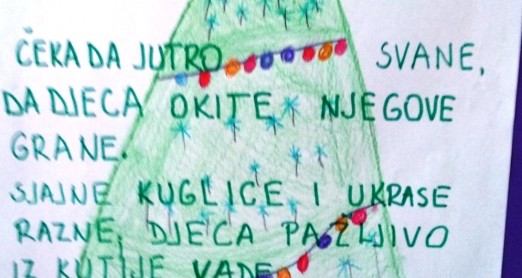 ČEKA DA JUTRO SVANE,
DA DJECA OKITE NJEGOVE
GRANE.
SJAJNE KUGLICE I UKRASE
RAZNE, DJECA PAŽLJIVO
IZ KUTIJE VADE